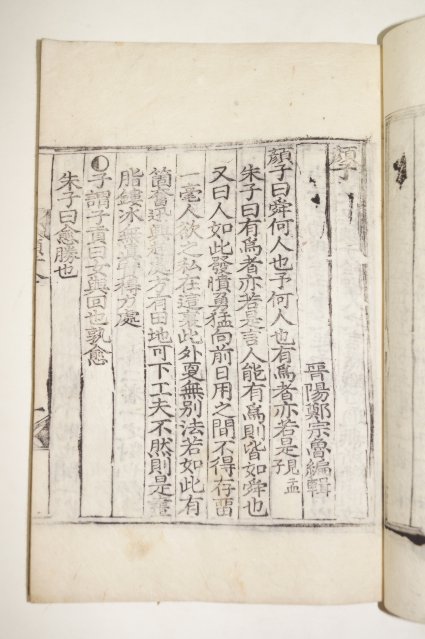 顔子
晉陽鄭宗魯編輯
顔子曰舜何人也予何人也有爲者亦若是見孟子
朱子曰有爲者亦若是言人能有爲則皆如舜也
又曰人如此發憤勇猛向前日用之間不得存留
一毫人欲之私在這裏此外更無別法若如此有
箇奮迅興起處方有田地可下工夫不然則是畫
脂鏤冰無眞實得力處
子謂子貢曰女與回也孰愈
朱子曰愈勝也